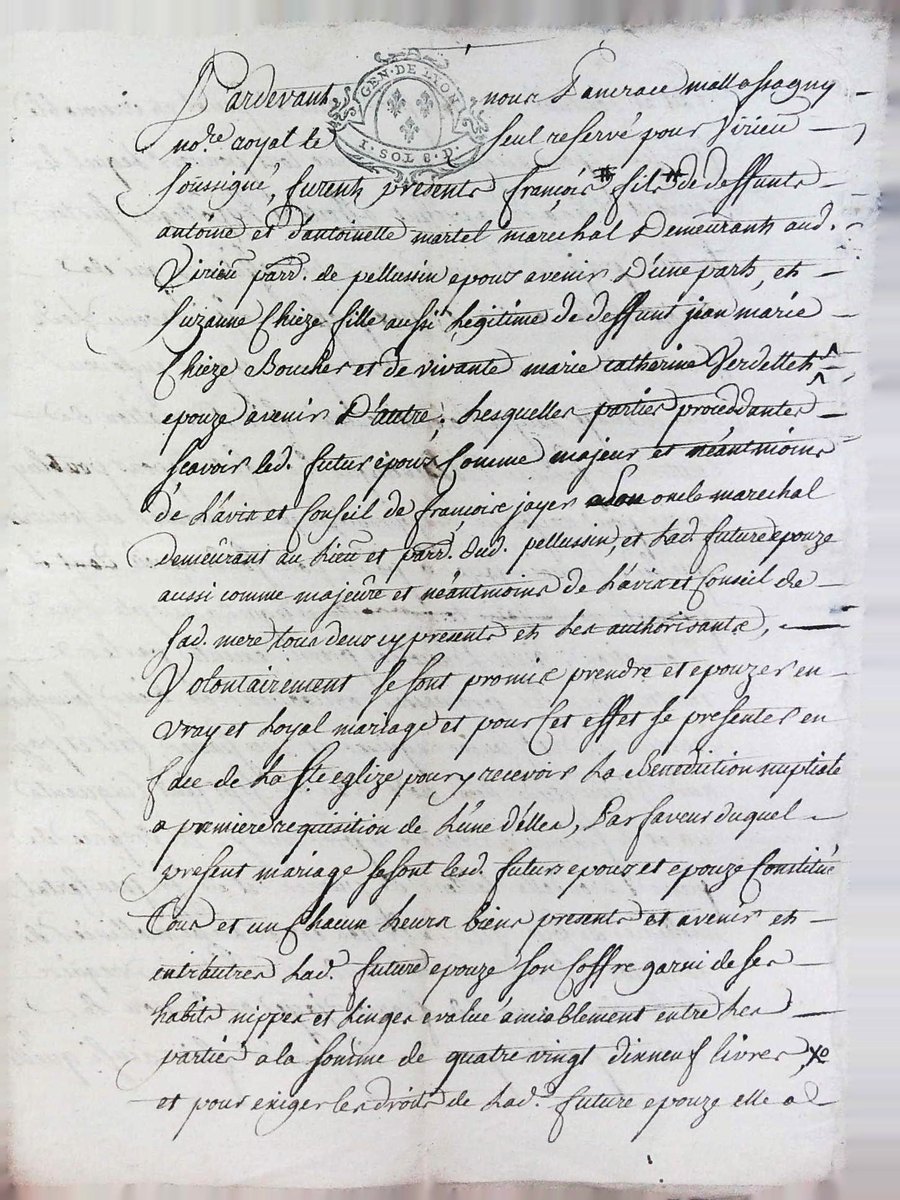 GEN. DE LYON
I. SOL 8. D.
Pardevant nous Pancrace mallassagny
no.re royal le seul reservé pour Virieu
soussigné, furent présents françois # fils # de deffunts
antoine et d'antoinelle martel marechal Demeurant aud.
Virieu parr. de pellussin epoux avenir D'une part, et
Suzanne Chieze fille aussi Legitime de deffunt jean marie
Chieze Boucher et de vivante marie catherine Verdellet
epouze avenir D'autre, Lesquelles parties procedantes
scavoir led. futur epoux Comme majeur et néantmoins
de L'avis et Conseil de françois jayer son oncle marechal
demeurant au Lieu et parr. dud. pellussin, et Lad. future epouze
aussi comme majeure et néantmoins de L'avis et Conseil de
sad. mere tous deux cy presents et Les authorisants,
Volontairement se sont promis prendre et epouzer en
vray et Loyal mariage et pour Cet effet se presenter en
face de La Ste eglize pour y recevoir La Benediction nuptiale
a premiere requisition de L'une d'elles, Par faveur duquel
present mariage se sont lesd. futurs epoux et epouze Constitué
Tous et un Chacun Leurs biens presents et avenir et
entr'autres Lad.e future epouze son Coffre garni de ses
habits nippes et Linges evalué amiablement entre Les
parties a la somme de quatre vingt dixneuf livres,
et pour exiger les droits de Lad.e future epouze elle a